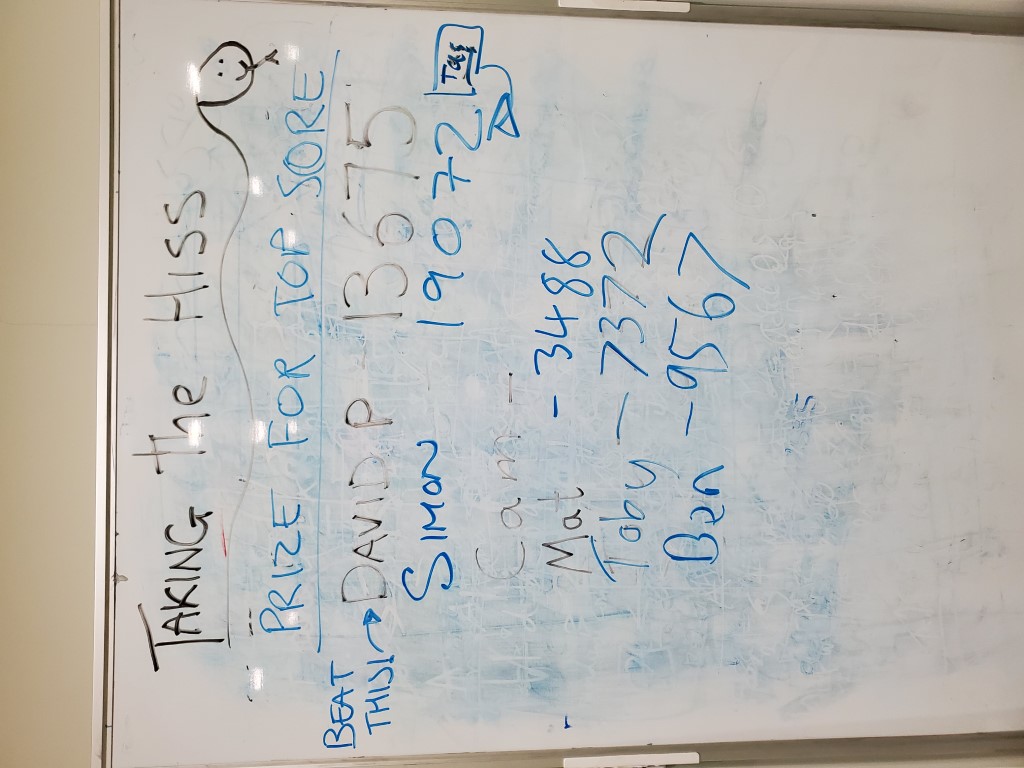 TAKING the HISS
PRIZE FOR TOP SORE
BEAT
THIS!
DAVID P 13675
SIMON 19072
Cam -
Mat - 3488
Toby - 7372
Ben - 9567